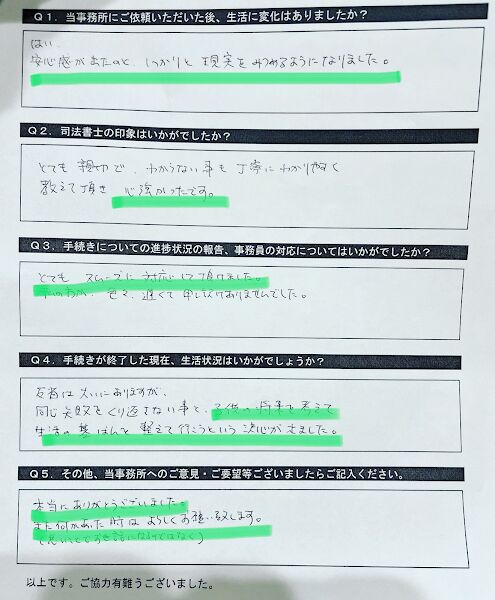 Q１．当事務所にご依頼いただいた後、生活に変化はありましたか？
はい、
安心感がまたのと、しっかりと現実をみつめるようになりました。
Q２．司法書士の印象はいかがでしたか？
とても親切で、わからない事も丁寧にわかりやすく
教えて頂き心強かったです。
Q３．手続きについての進捗状況の報告、事務員の対応についてはいかがでしたか？
とてもスムーズに対応して頂けました。
私の方が、色々、遅くて申し訳ありませんでした。
Q４．手続きが終了した現在、生活状況はいかがでしょうか？
反省は大いにありますが、
同じ失敗をくり返さない事と、子供の将来を考えて
生活の基ばんを整えて行こうという決心が出ました。
Q５．その他、当事務所へのご意見・ご要望等ございましたらご記入ください。
本当にありがとうございました。
また何かあった時はよろしくお願い致します。
以上です。ご協力有難うございました。